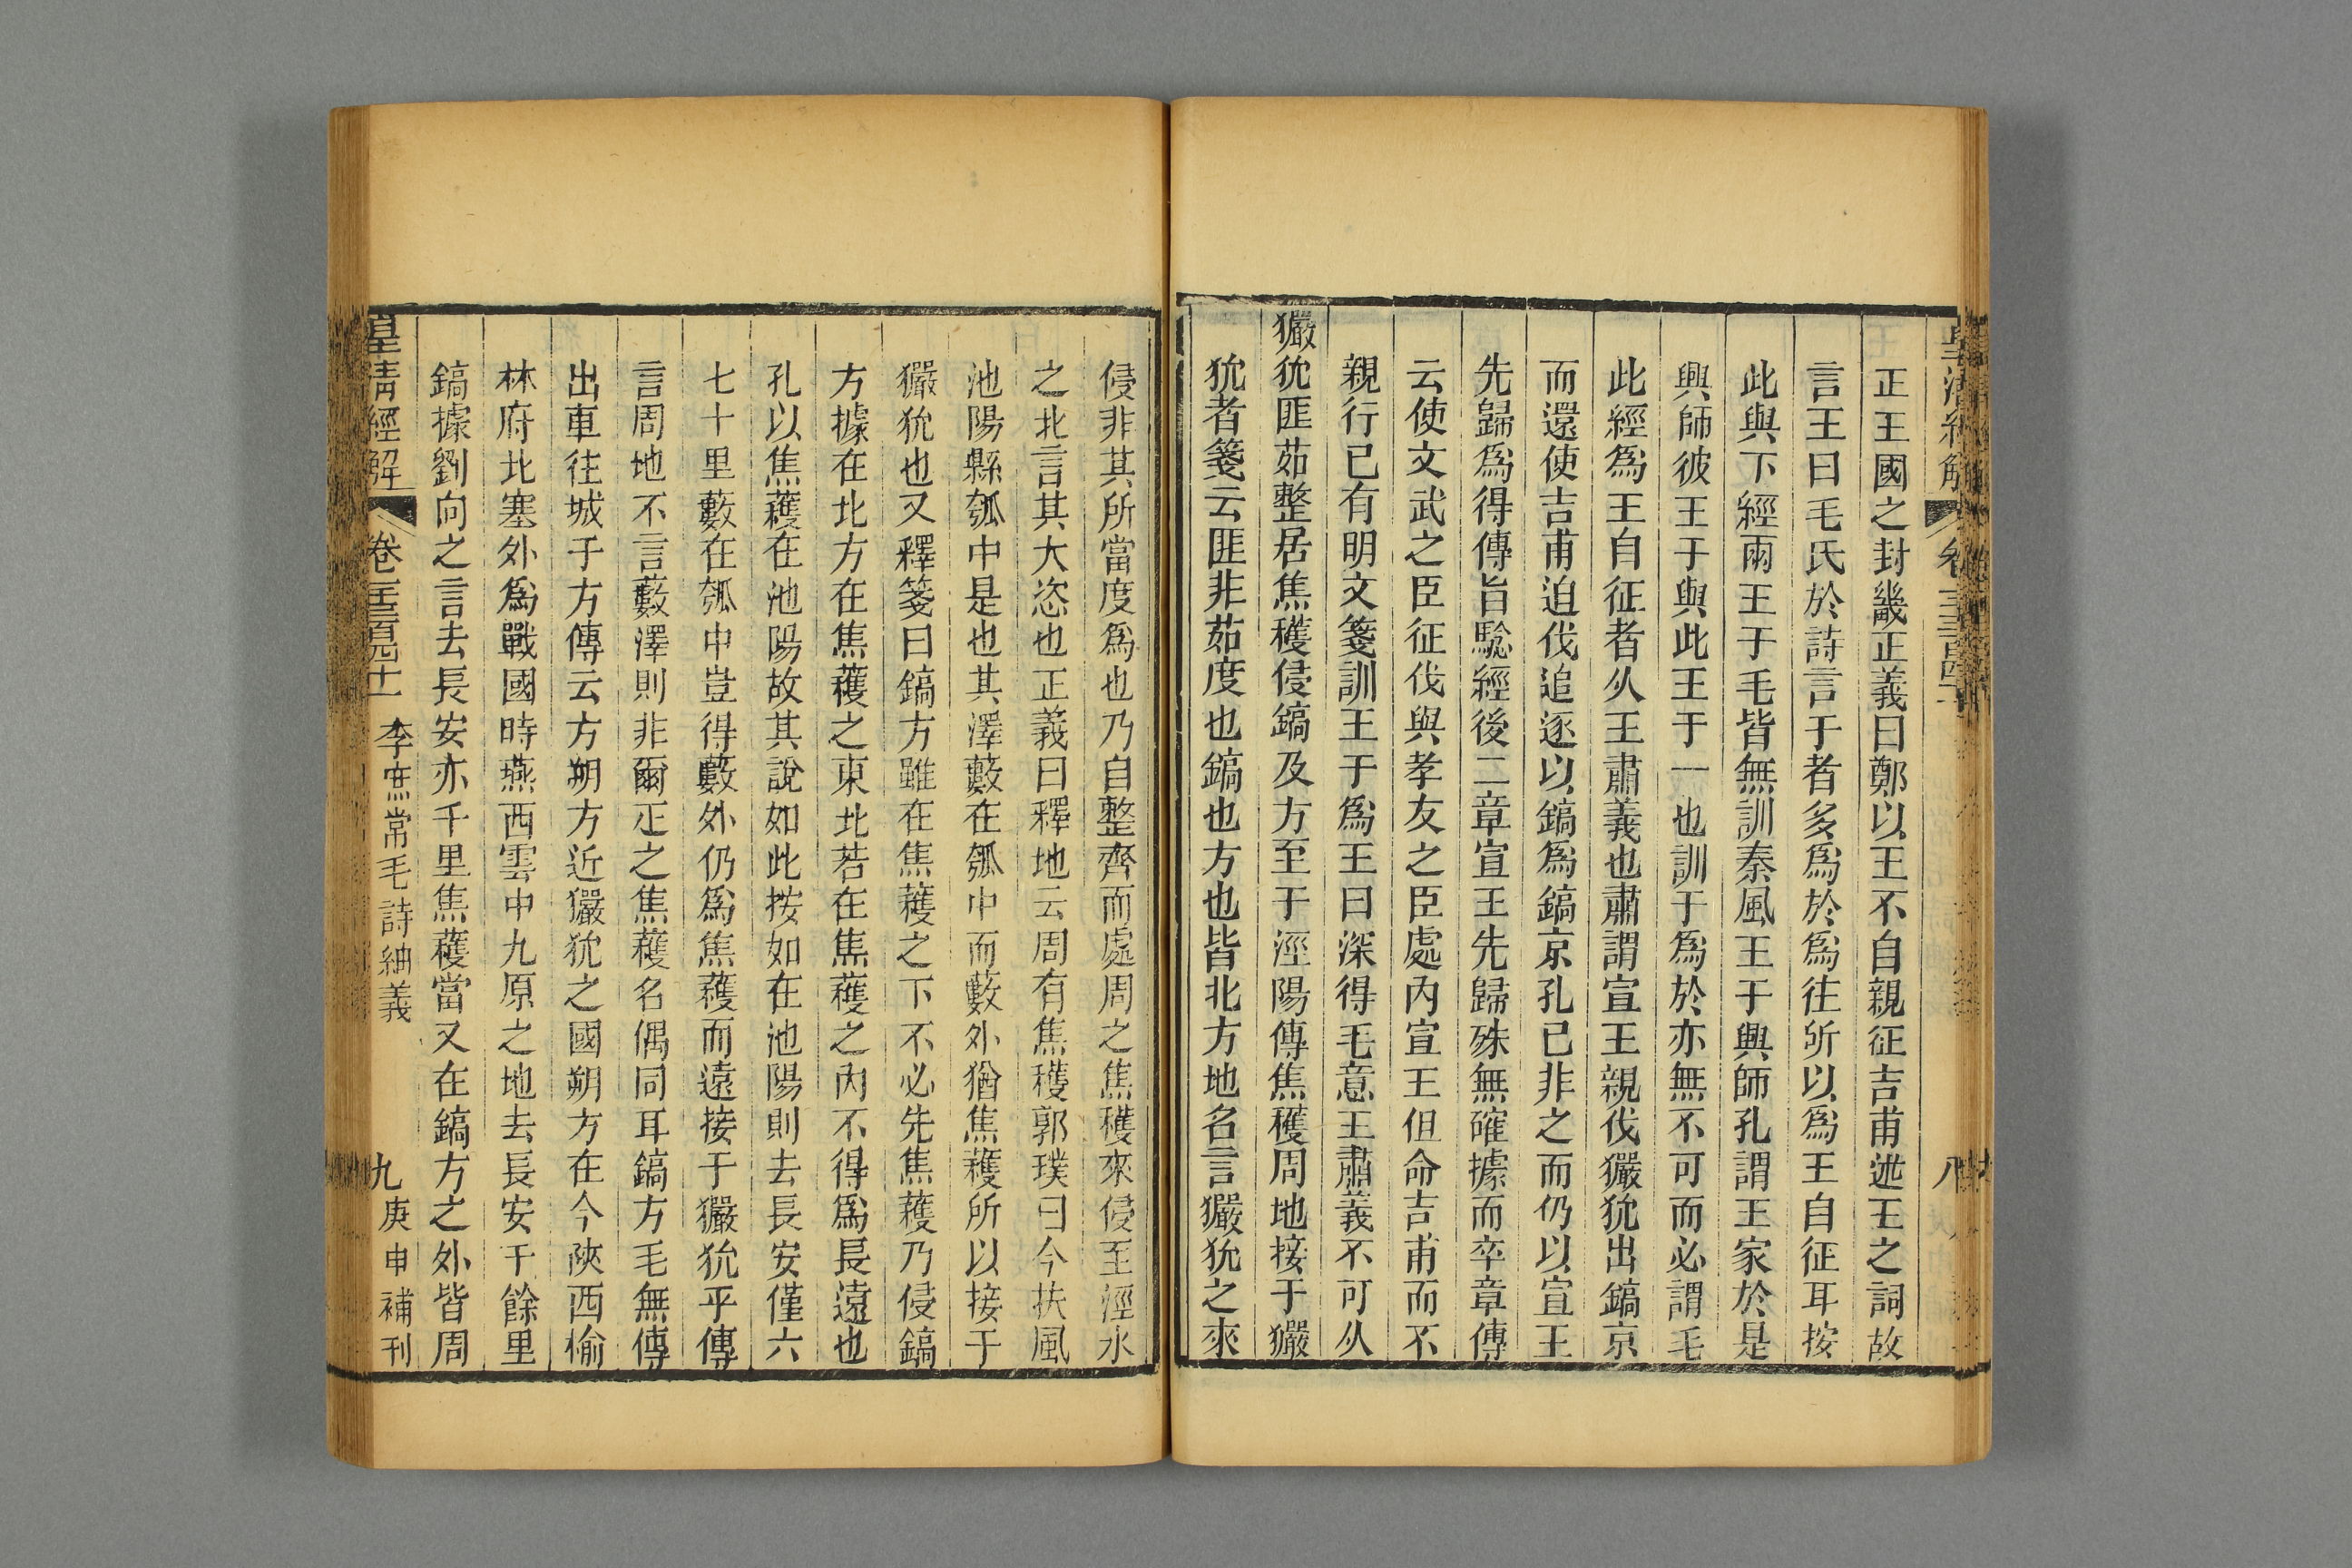 正王國之封畿正義曰鄭以王不自親征吉甫述王之詞故
言王曰毛氏於詩言于者多爲於爲往所以爲王自征耳按
此與下經兩王于毛皆無訓秦風王于興師孔謂王家於是
興師彼王于與此王于一也訓于爲於亦無不可而必謂毛
此經爲王自征者從王肅義也肅謂宣王親伐玁狁出鎬京
而還使吉甫迫伐追逐以鎬爲鎬京孔已非之而仍以宣王
先歸爲得傳旨騐經後二章宣王先歸殊無確據而卒章傳
云使文武之臣征伐與孝友之臣處內宣王但命吉甫而不
親行已有明文箋訓王于爲王曰深得毛意王肅義不可從
玁狁匪茹整居焦穫侵鎬及方至于涇陽傳焦穫周地接于玁
狁者箋云匪非茹度也鎬也方也皆北方地名言玁狁之來
侵非其所當度爲也乃自整齊而處周之焦穫來侵至涇水
之北言其大恣也正義曰釋地云周有焦穫郭璞曰今扶風
池陽縣瓠中是也其澤藪在瓠中而藪外猶焦穫所以接于
玁狁也又釋箋曰鎬方雖在焦穫之下不必先焦穫乃侵鎬
方據在北方在焦穫之東北若在焦穫之內不得爲長遠也
孔以焦穫在池陽故其說如此按如在池陽則去長安僅六
七十里藪在瓠中豈得藪外仍爲焦穫而遠接于玁狁乎傳
言周地不言藪澤則非爾疋之焦穫名偶同耳鎬方毛無傳
出車往城于方傳云方朔方近玁狁之國朔方在今陝西榆
林府北塞外爲戰國時燕西雲中九原之地去長安千餘里
鎬據劉向之言去長安亦千里焦穫當又在鎬方之外皆周
皇清經解 卷一千三百四十一 李庶常毛詩紬義 九 庚申補刊